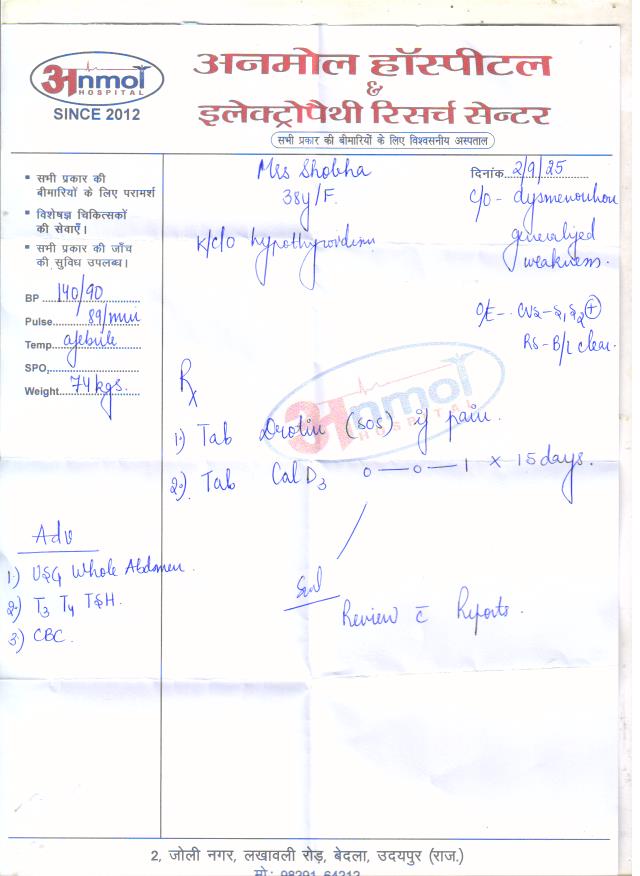 अnmol
HOSPITAL
SINCE 2012
अनमोल हॉस्पीटल
&
इलेक्ट्रोपैथी रिसर्च सेन्टर
सभी प्रकार की बीमारियों के लिए विश्वसनीय अस्पताल
▪ सभी प्रकार की
बीमारियों के लिए परामर्श
▪ विशेषज्ञ चिकित्सकों
की सेवाएँ।
▪ सभी प्रकार की जाँच
की सुविध उपलब्ध।
BP 140/90
Pulse 89/min
Temp. afebrile
SPO,
Weight 74 kgs.
Mrs Shobha
38y/F.
K/c/o hypothyroidism
दिनांक 2/9/25
C/O - dysmenorrhoea
generalized
weakness.
O/E - CVS - S1S2 +
RS - B/L clear.
Rx
अnmol
HOSPITAL
1.) Tab Drotin (SOS) if pain.
2.) Tab Cal D3 0 — 0 — 1 × 15 days.
Adv
1.) USG Whole Abdomen.
2.) T3 T4 TSH.
3.) CBC.
Review c̄ Reports.
2, जोली नगर, लखावली रोड़, बेदला, उदयपुर (राज.)